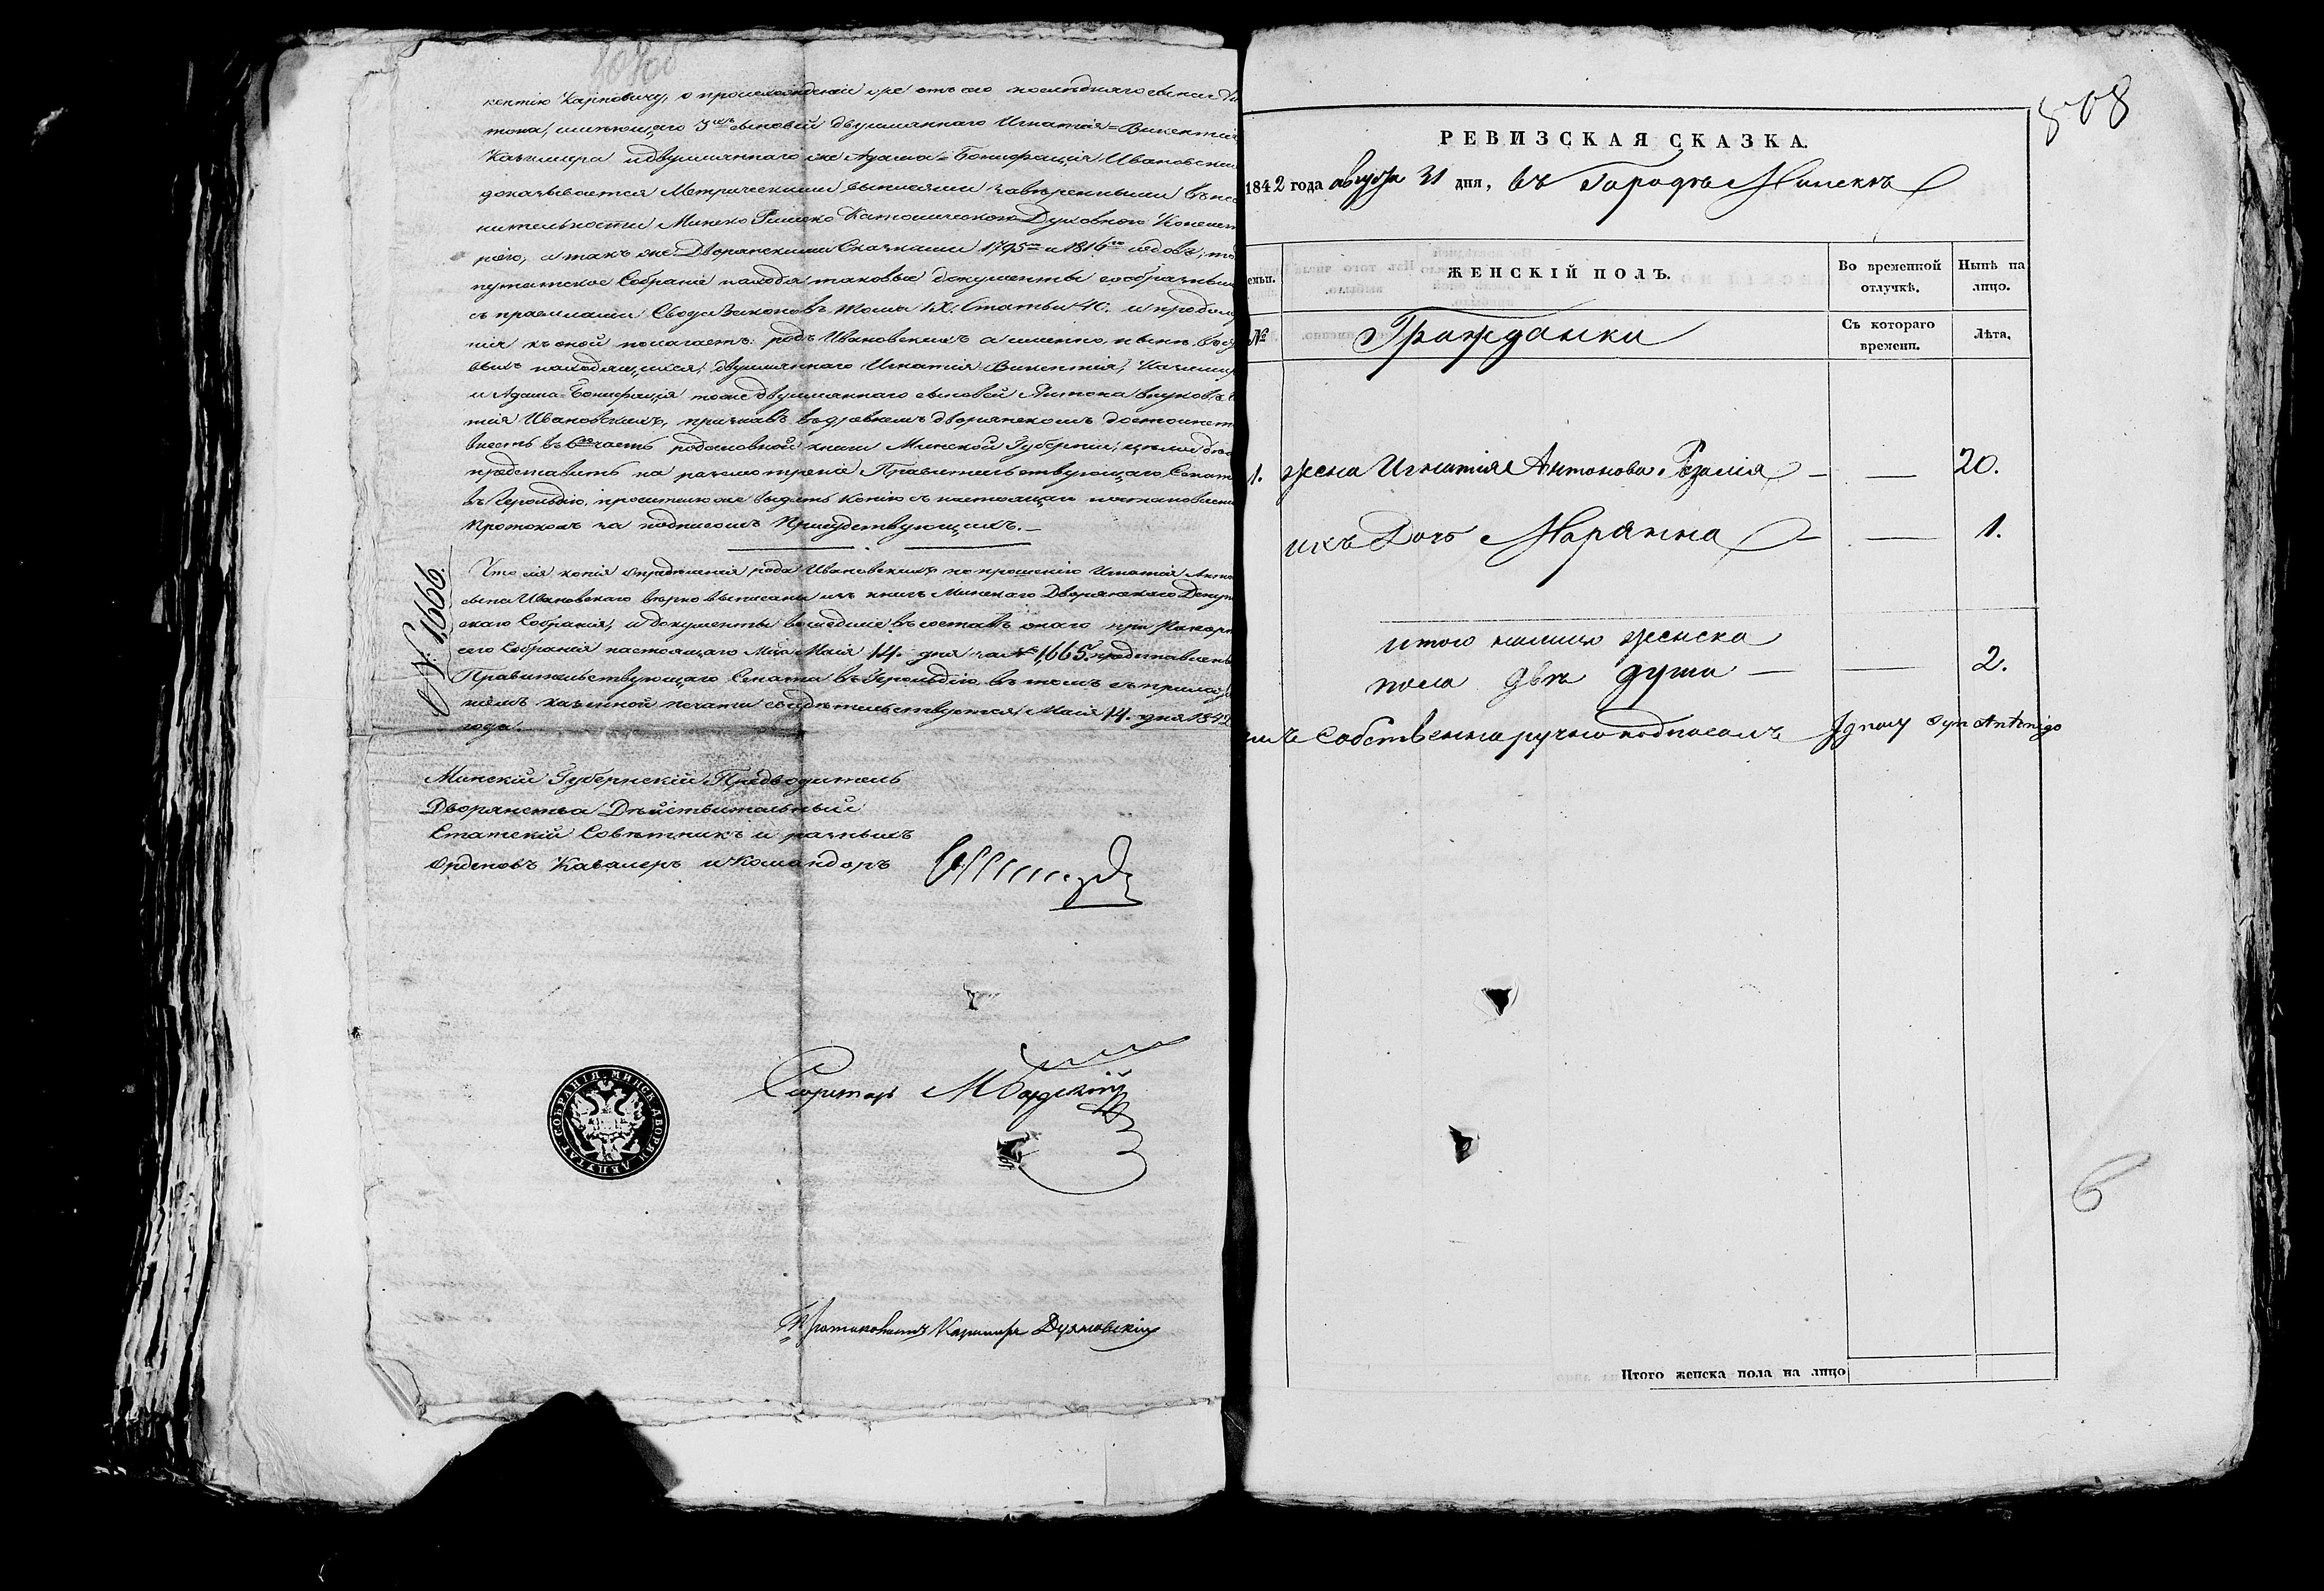 кентію Карповичу, о происхожденіи же отъ его последняго сына Ан
тона, имѣющаго 3хъ сыновей двуимяннаго Игнатія=Викентія
Казимира и двуимяннаго же Адама=Бонифація Ивановских
доказывается Метрическими выписями завѣренными въ
нительности Минско Римско Католической Духовной Консист
ріею, а такъ же Дворянскими Сказками 1795го и 1816го годовъ;
путатское Собраніе находя таковые документы сообразными
съ правилами Свода Законовъ Тома IX. Статьи 40. и продол
нія къ оной полагаетъ: родъ Ивановскихъ а именно нынѣ въ
выхъ находящихся; двуимяннаго Игнатія Викентія, Казимир
и Адама=Бонифація тоже двуимяннаго сыновей Антона внуковъ
тія Ивановскихъ, признавъ въ древнемъ дворянскомъ достоинст
внесть въ 6ю часть родословной книги Минской Губерніи,
представить на разсмотреніе Правительствующаго Сенат
въ Герольдію, просителю же выдать копію съ настоящаго постановленія
Протоколъ за подписомъ Присудствующихъ.
№ 1,666.
Что сія копія опредѣленія рода Ивановскихъ по прошенію Игнатія Анто
сына Ивановскаго вѣрно выписана изъ книгъ Минскаго Дворянскаго Депут
скаго Собранія, и документы вошедшіе въ составъ онаго при Рапорт
сего Собранія настоящаго Мца Маія 14. дня за № 1,665. представлены
Правительствующаго Сената въ Герольдію въ томъ съ прилож
ніемъ казенной печати свидѣтельствуется; Маія 14. дня 1842
года.
Минскій Губернскій Предводитель
Дворянства Дѣйствительный
Статскій Совѣтникъ и разныхъ
Орденовъ Кавалеръ и Командоръ
Секретарь М
МИНСК. ДВОРЯН. ДЕПУТАТ. СОБРАНІЯ
Протоколистъ Казимиръ
508
РЕВИЗСКАЯ СКАЗКА.
1842 года августа 31 дня, въ Городѣ Минскѣ
емьи.
ЖЕНСКІЙ ПОЛЪ.
Во временной отлучкѣ.
Нынѣ на лицо.
№
Гражданки
Съ котораго времени.
Лѣта.
1. жена Игнатія Антонова Розалія — — 20.
ихъ Дочь Маріанна — — 1.
итого налицо женска
пола двѣ души — — 2.
собственноручно подписомъ Ignacy syn Antoniego
6
Итого женска пола на лицо